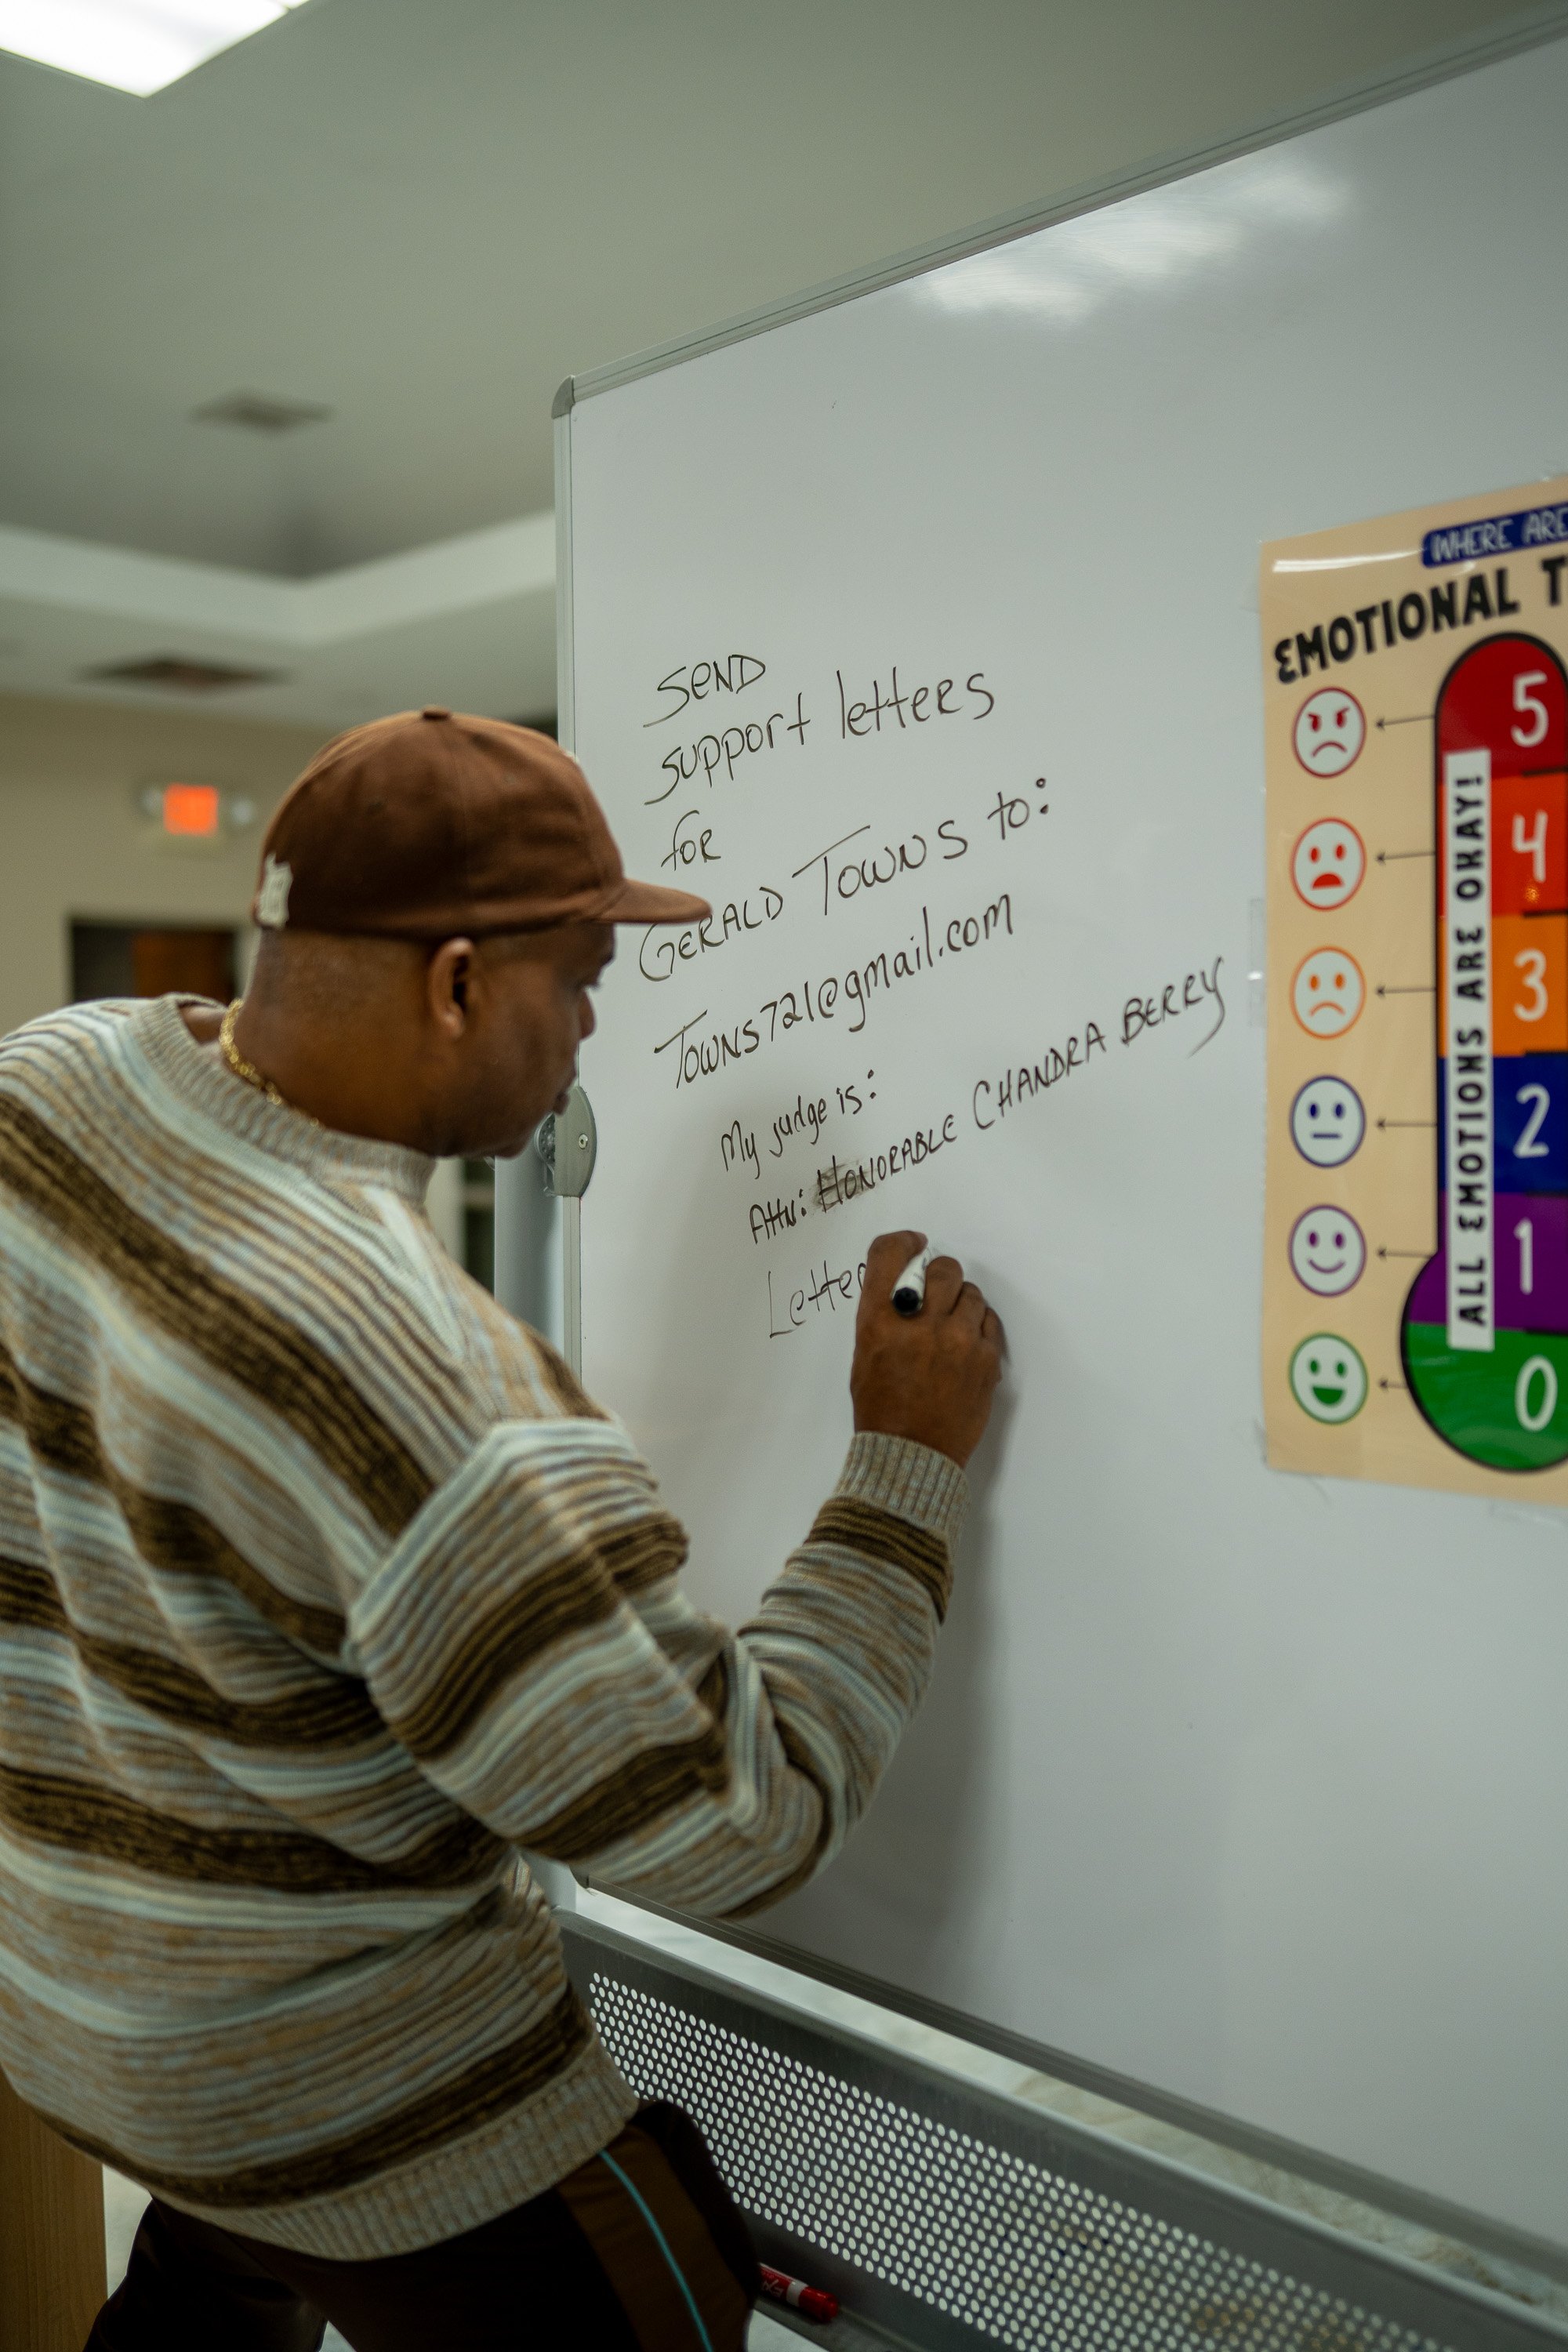 SEND
support letters
for
GERALD TOWNS to:
Towns721@gmail.com
My judge is:
Attn: HONORABLE CHANDRA BERRY
Letter
WHERE ARE
EMOTIONAL T
5
4
3
2
1
0
ALL EMOTIONS ARE OKAY!